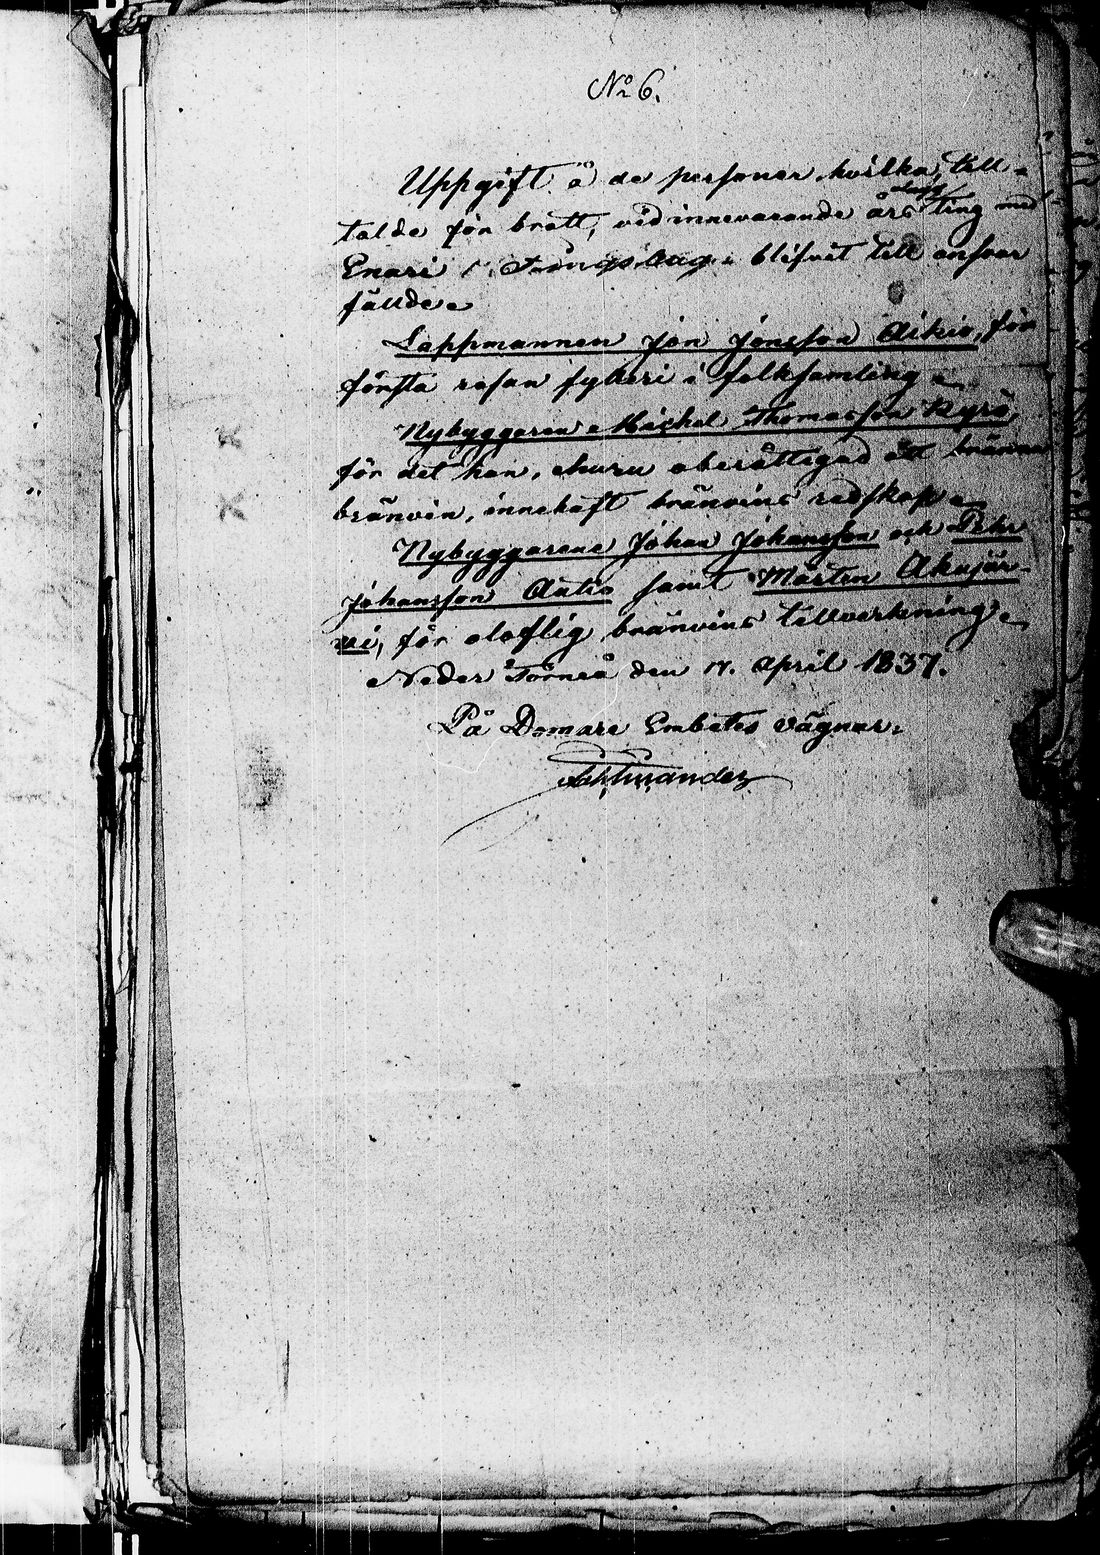 No 6.
Uppgift å de personer hvilka, till-
talde för brott, vid innevarande års Lagtima ting med
Enari Tingslag blifvit till ansvar
fällde.
Lappmannen Jon Jonsson Aikio, för
första resan fylleri i folksamling.
Nybyggaren Michel Thomasson Kyrö,
för det han, ehuru oberättigad att bränna
bränvin, innehaft bränvins redskap.
Nybyggarene Johan Johansson och Pehr
Johansson Autio samt Mårten Akujär-
vi, för olaflig bränvins tillverkning.
Neder Torneå den 17. April 1837.
På Domare Embetes vägnar: